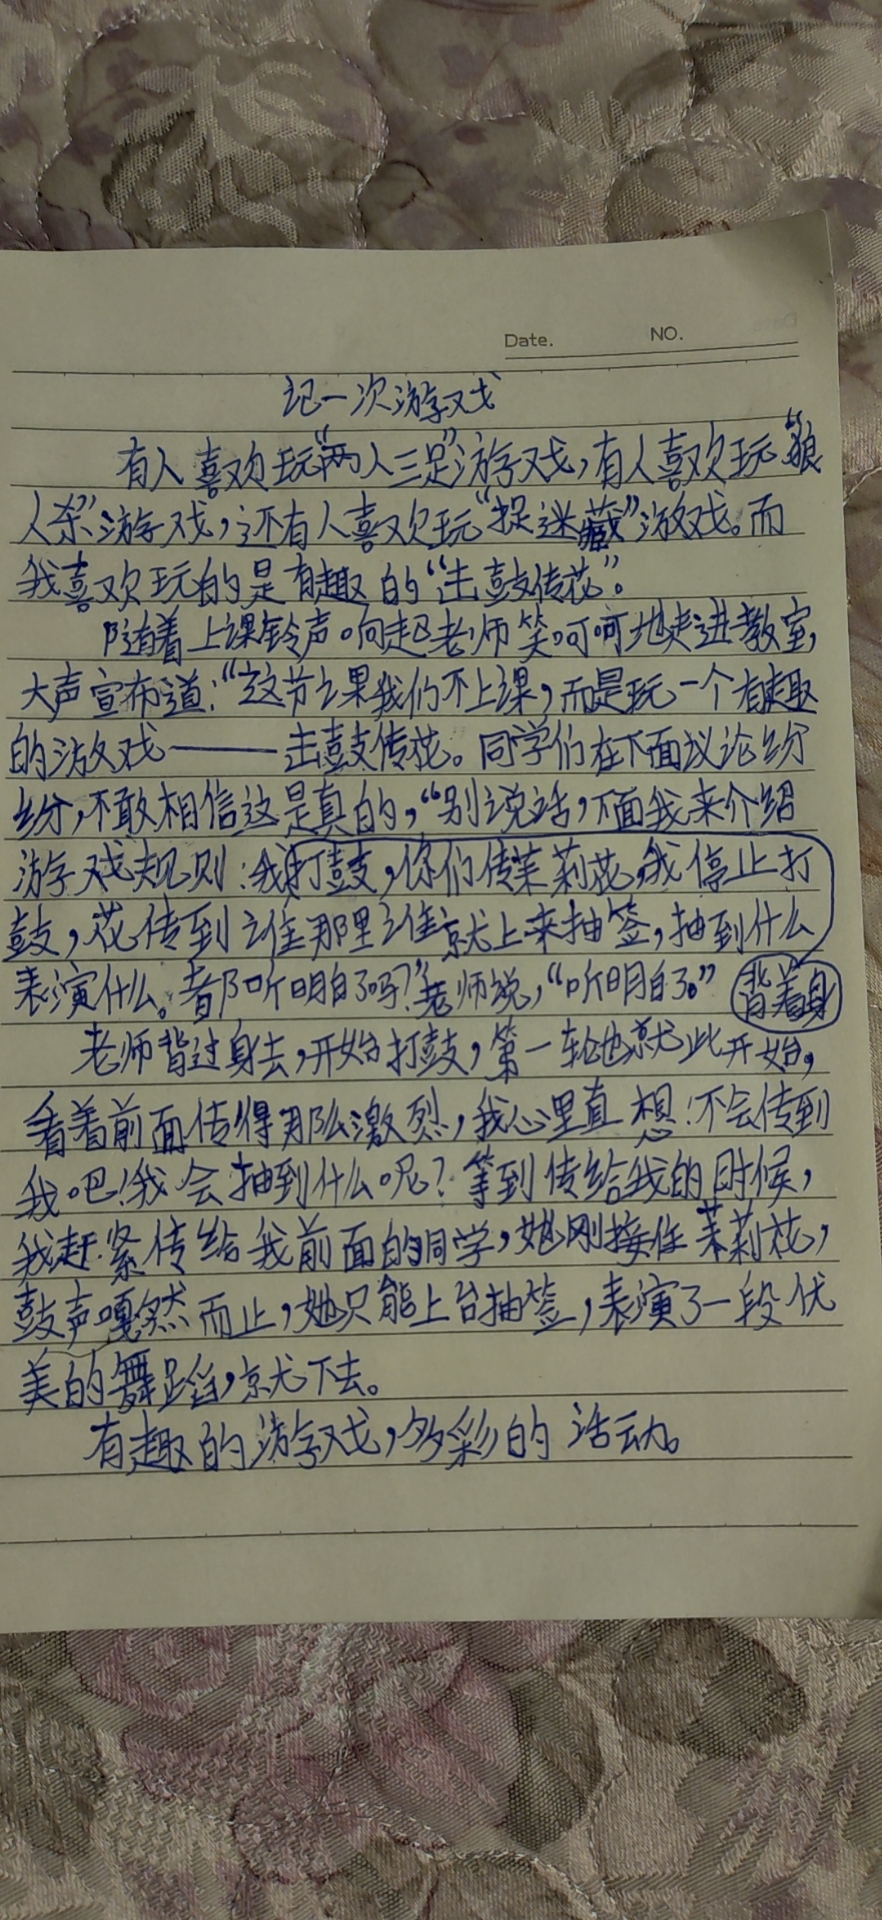 Date. NO.
记一次游戏
有人喜欢玩“两人三足”游戏,有人喜欢玩“狼
人杀”游戏,还有人喜欢玩“捉迷藏”游戏。而
我喜欢玩的是有趣的“击鼓传花”。
随着上课铃声响起老师笑呵呵地走进教室,
大声宣布道:“这节课我们不上课,而是玩一个有趣
的游戏——击鼓传花。同学们在下面议论纷
纷,不敢相信这是真的,“别说话,下面我来介绍
游戏规则:我打鼓,你们传茉莉花,我停止打
鼓,花传到谁那里谁就上来抽签,抽到什么
表演什么。都听明白了吗?”老师说,“听明白了。” 背着身
老师背过身去,开始打鼓,第一轮也就此开始,
看着前面传得那么激烈,我心里直想:不会传到
我吧!我会抽到什么呢?等到传给我的时候,
我赶紧传给我前面的同学,她刚接住茉莉花,
鼓声嘎然而止,她只能上台抽签,表演了一段优
美的舞蹈,就下去。
有趣的游戏,多彩的活动。